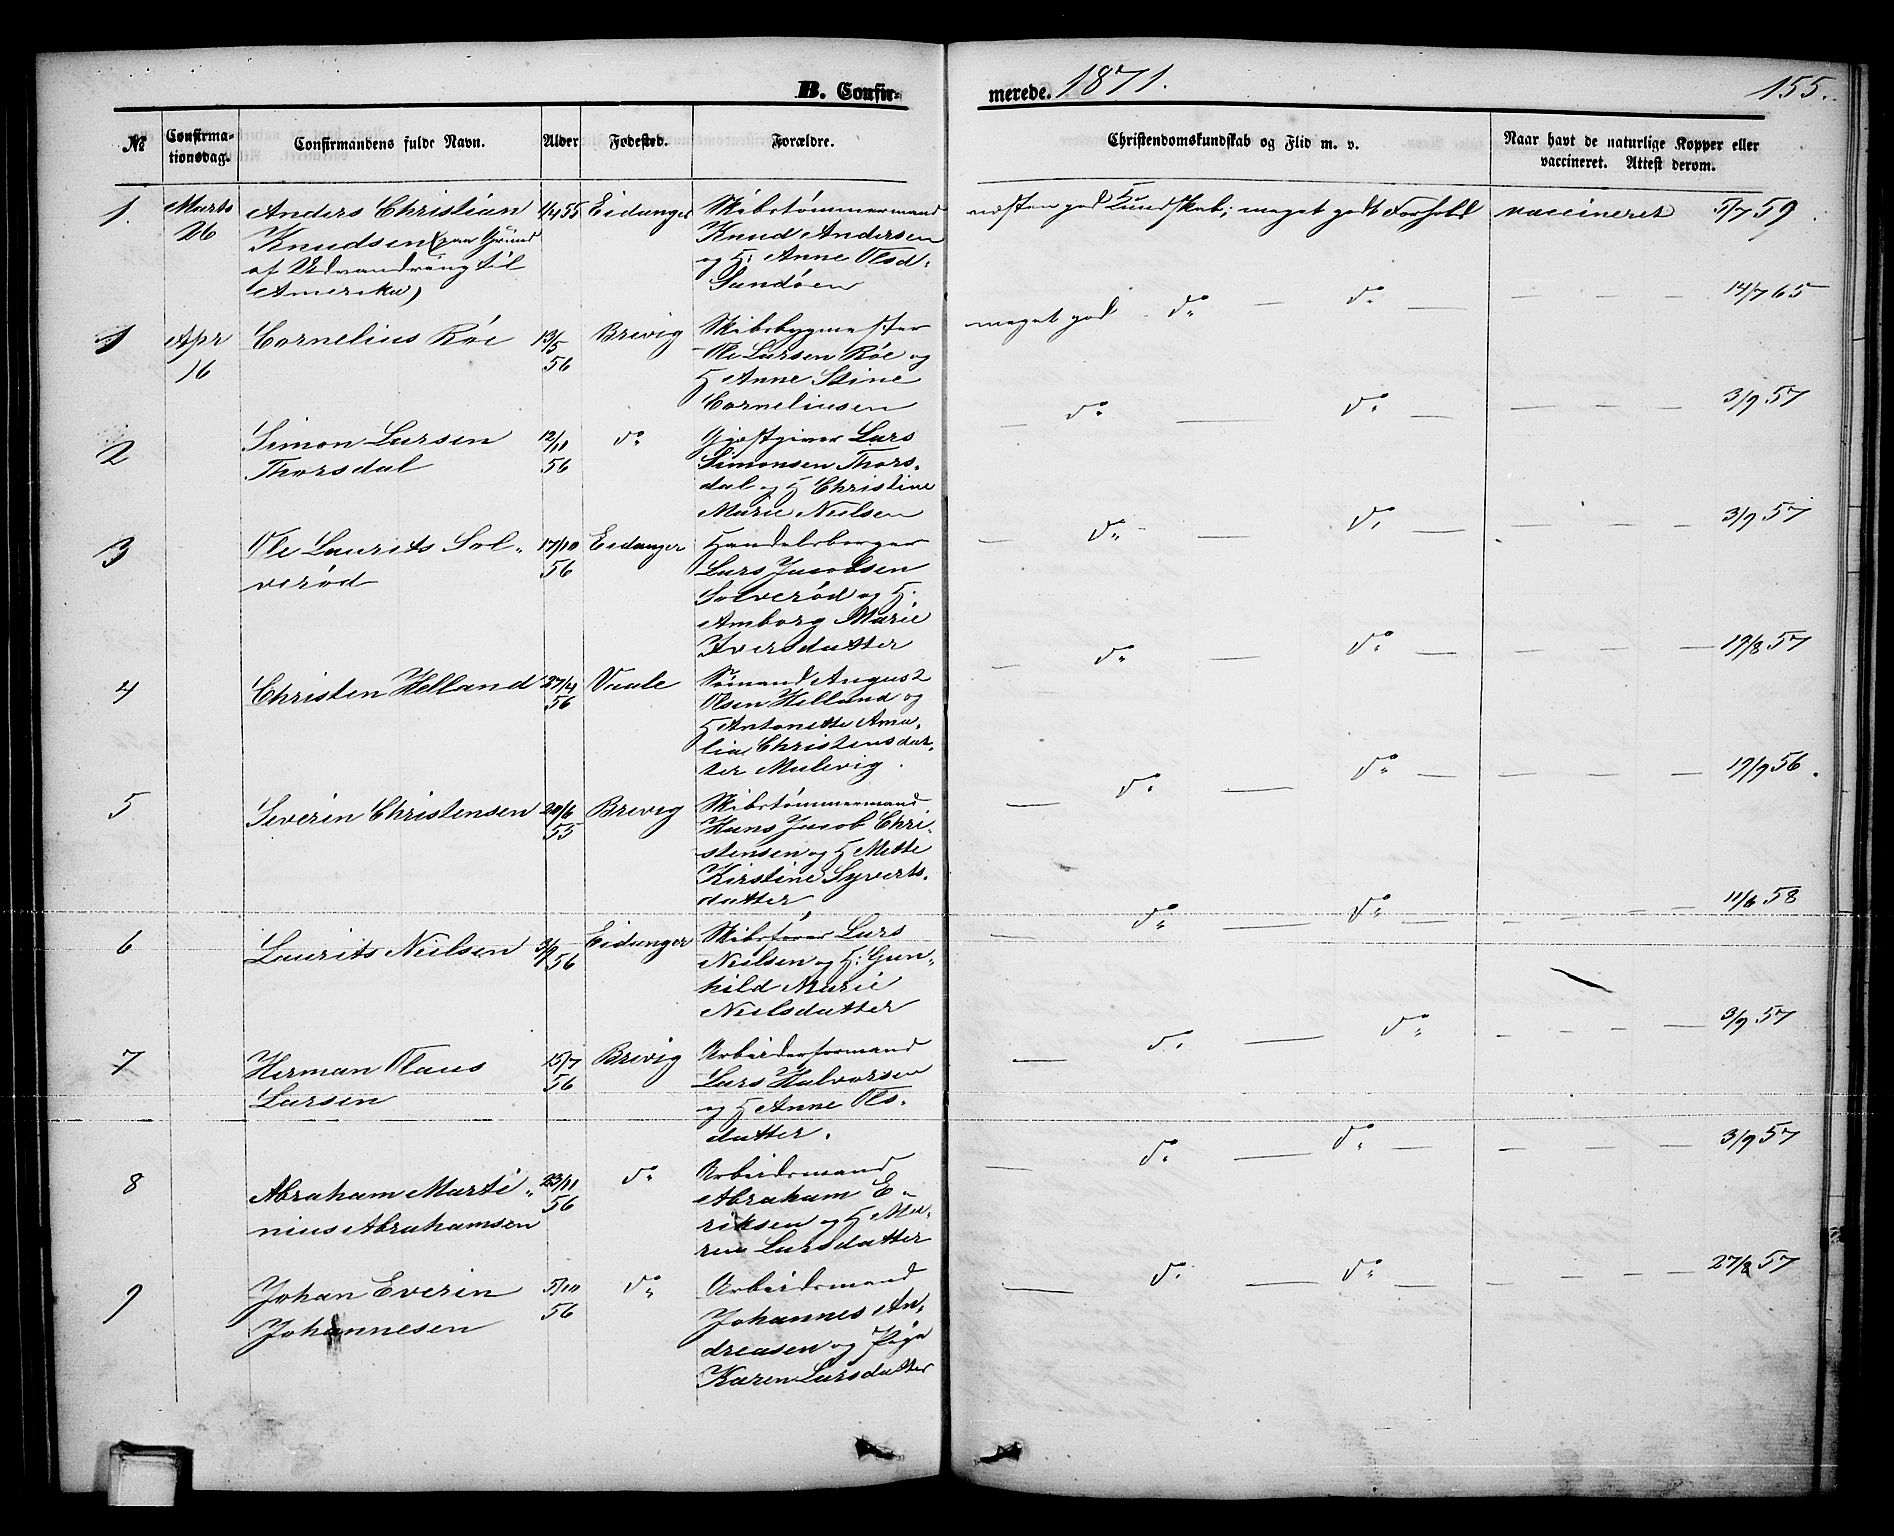 B. Confir-
merede. 1871.
155.
№
Confirma-
tionsdag.
Confirmandens fulde Navn.
Alder
Fødested.
Forældre.
Christendomskundskab og Flid m. v.
Naar havt de naturlige Kopper eller
vaccineret. Attest derom.
1. Marts Anders Christian 1/4 55 Eidanger Skibstømmermand næsten god Kundskab; meget godt Forhold vaccineret 5/7 59.
26 Knudsen (paa Grund Knud Andersen
af Udvandring til og H: Anne Olsd.
Amerika) Sandøen
1 Apr Cornelius Röe 13/5 Brevig Skibsbygmester meget god do — do — — — — 14/7 65
16 56 Ole Larsen Röe og
H Anne Stine
Corneliusen
2 Simon Larsen 12/11 do Gjæstgiver Lars — do — do — — — — 3/9 57
Thorsdal 56 Simonsen Thors-
dal og H Christine
Marie Nielsen
3 Ole Laurits Sol- 17/10 Eidanger Handelsborger — do — do — — — — 3/9 57
verød 56 Lars Jacobsen
Solverød og H.
Amborg Marie
Iversdatter
4 Christen Helland 27/4 Vaale Sømand August — do — do — — — — 19/8 57
56 Olsen Helland og
H Antonette Ama-
lia Christensdat-
ter Mulevig.
5 Severin Christensen 20/6 Brevig Skibstømmermand — do — do — — — — 19/9 56.
55 Hans Jacob Chri-
stensen og H Mette
Kirstine Syverts-
datter
6 Laurits Nielsen 3/9 Eidanger Skibsfører Lars — do — do — — — — 11/6 58
56 Nielsen og H: Gun-
hild Marie
Nielsdatter
7 Herman Olaus 15/7 Brevig Arbeiderformand — do — do — — — — 3/9 57
Larsen 56 Lars Halvorsen
og H Anne Ols-
datter.
8 Abraham Marti- 23/11 do Arbeidsmand — do — do — — — — 3/9 57
nius Abrahamsen 56 Abraham E-
riksen og H Ma-
ren Larsdatter
9 Johan Everin 5/10 do Arbeidsmand — do — do — — — — 27/8 57
Johannesen 56 Johannes An-
dreasen og Pige
Karen Larsdatter